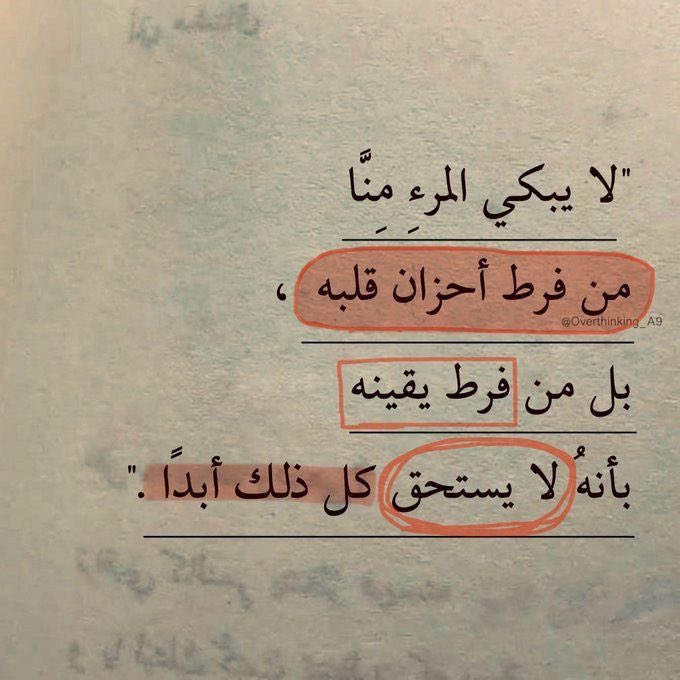 "لا يبكي المرءِ مِنَّا
من فرط أحزان قلبه ،
@Overthinking_A9
بل من فرط يقينه
بأنهُ لا يستحق كل ذلك أبدًا ."